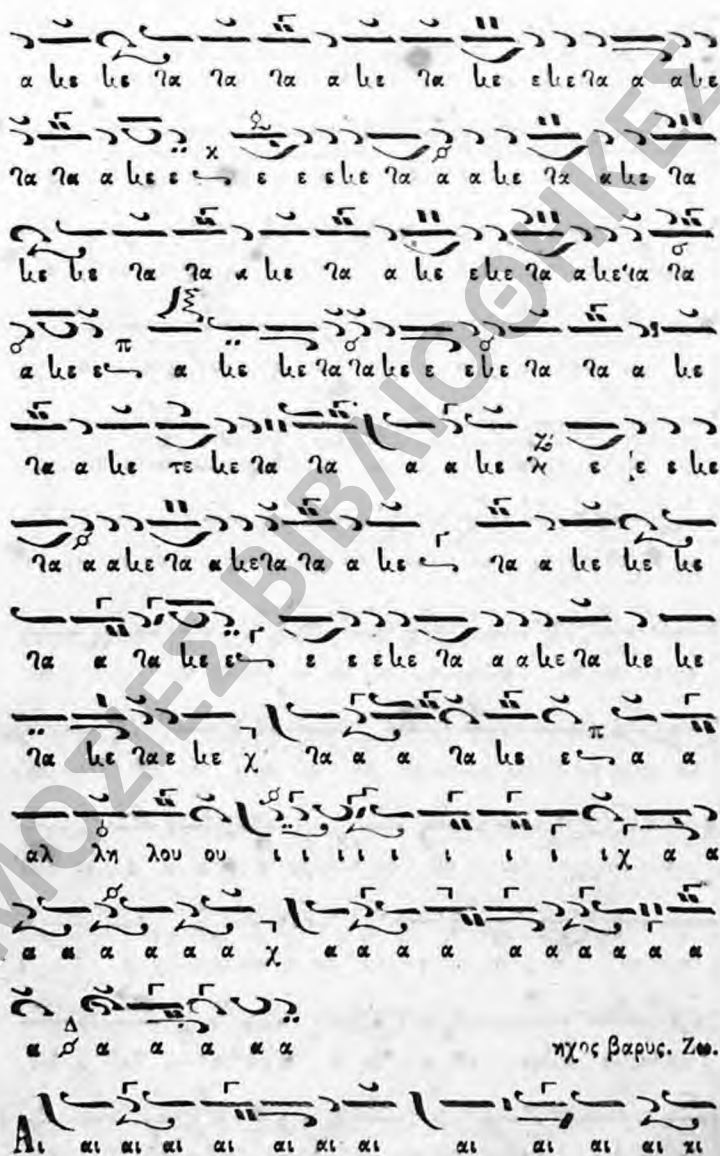 α κε κε τα τα τα α κε τα κε ε κε τα α α κε
τα τα α κε ε χ ε ε ε κε τα α α κε τα α κε τα
κε κε τα τα α κε τα α κε ε κε τα α κε τα τα
α κε ε π α κε κε τα τα κε ε ε κε τα τα α κε
τα α κε τε κε τα τα α α κε ε ε ε κε
τα α α κε τα α κε τα τα α κε Γ τα α κε κε κε
τα α τα κε ε Γ ε ε ε κε τα α α κε τα κε κε
τα κε τα ε κε χ τα α α τα κε ε π α α
αλ λη λου ου ι ι ι ι ι ι ι ι χ α α
α α α α α α χ α α α α α α α α α α
α Δ α α α α α
ηχος βαρυς. Ζω.
Αι αι αι αι αι αι αι αι αι αι αι αι
ΔΗΜΟΣΙΕΣ ΒΙΒΛΙΟΘΗΚΕΣ